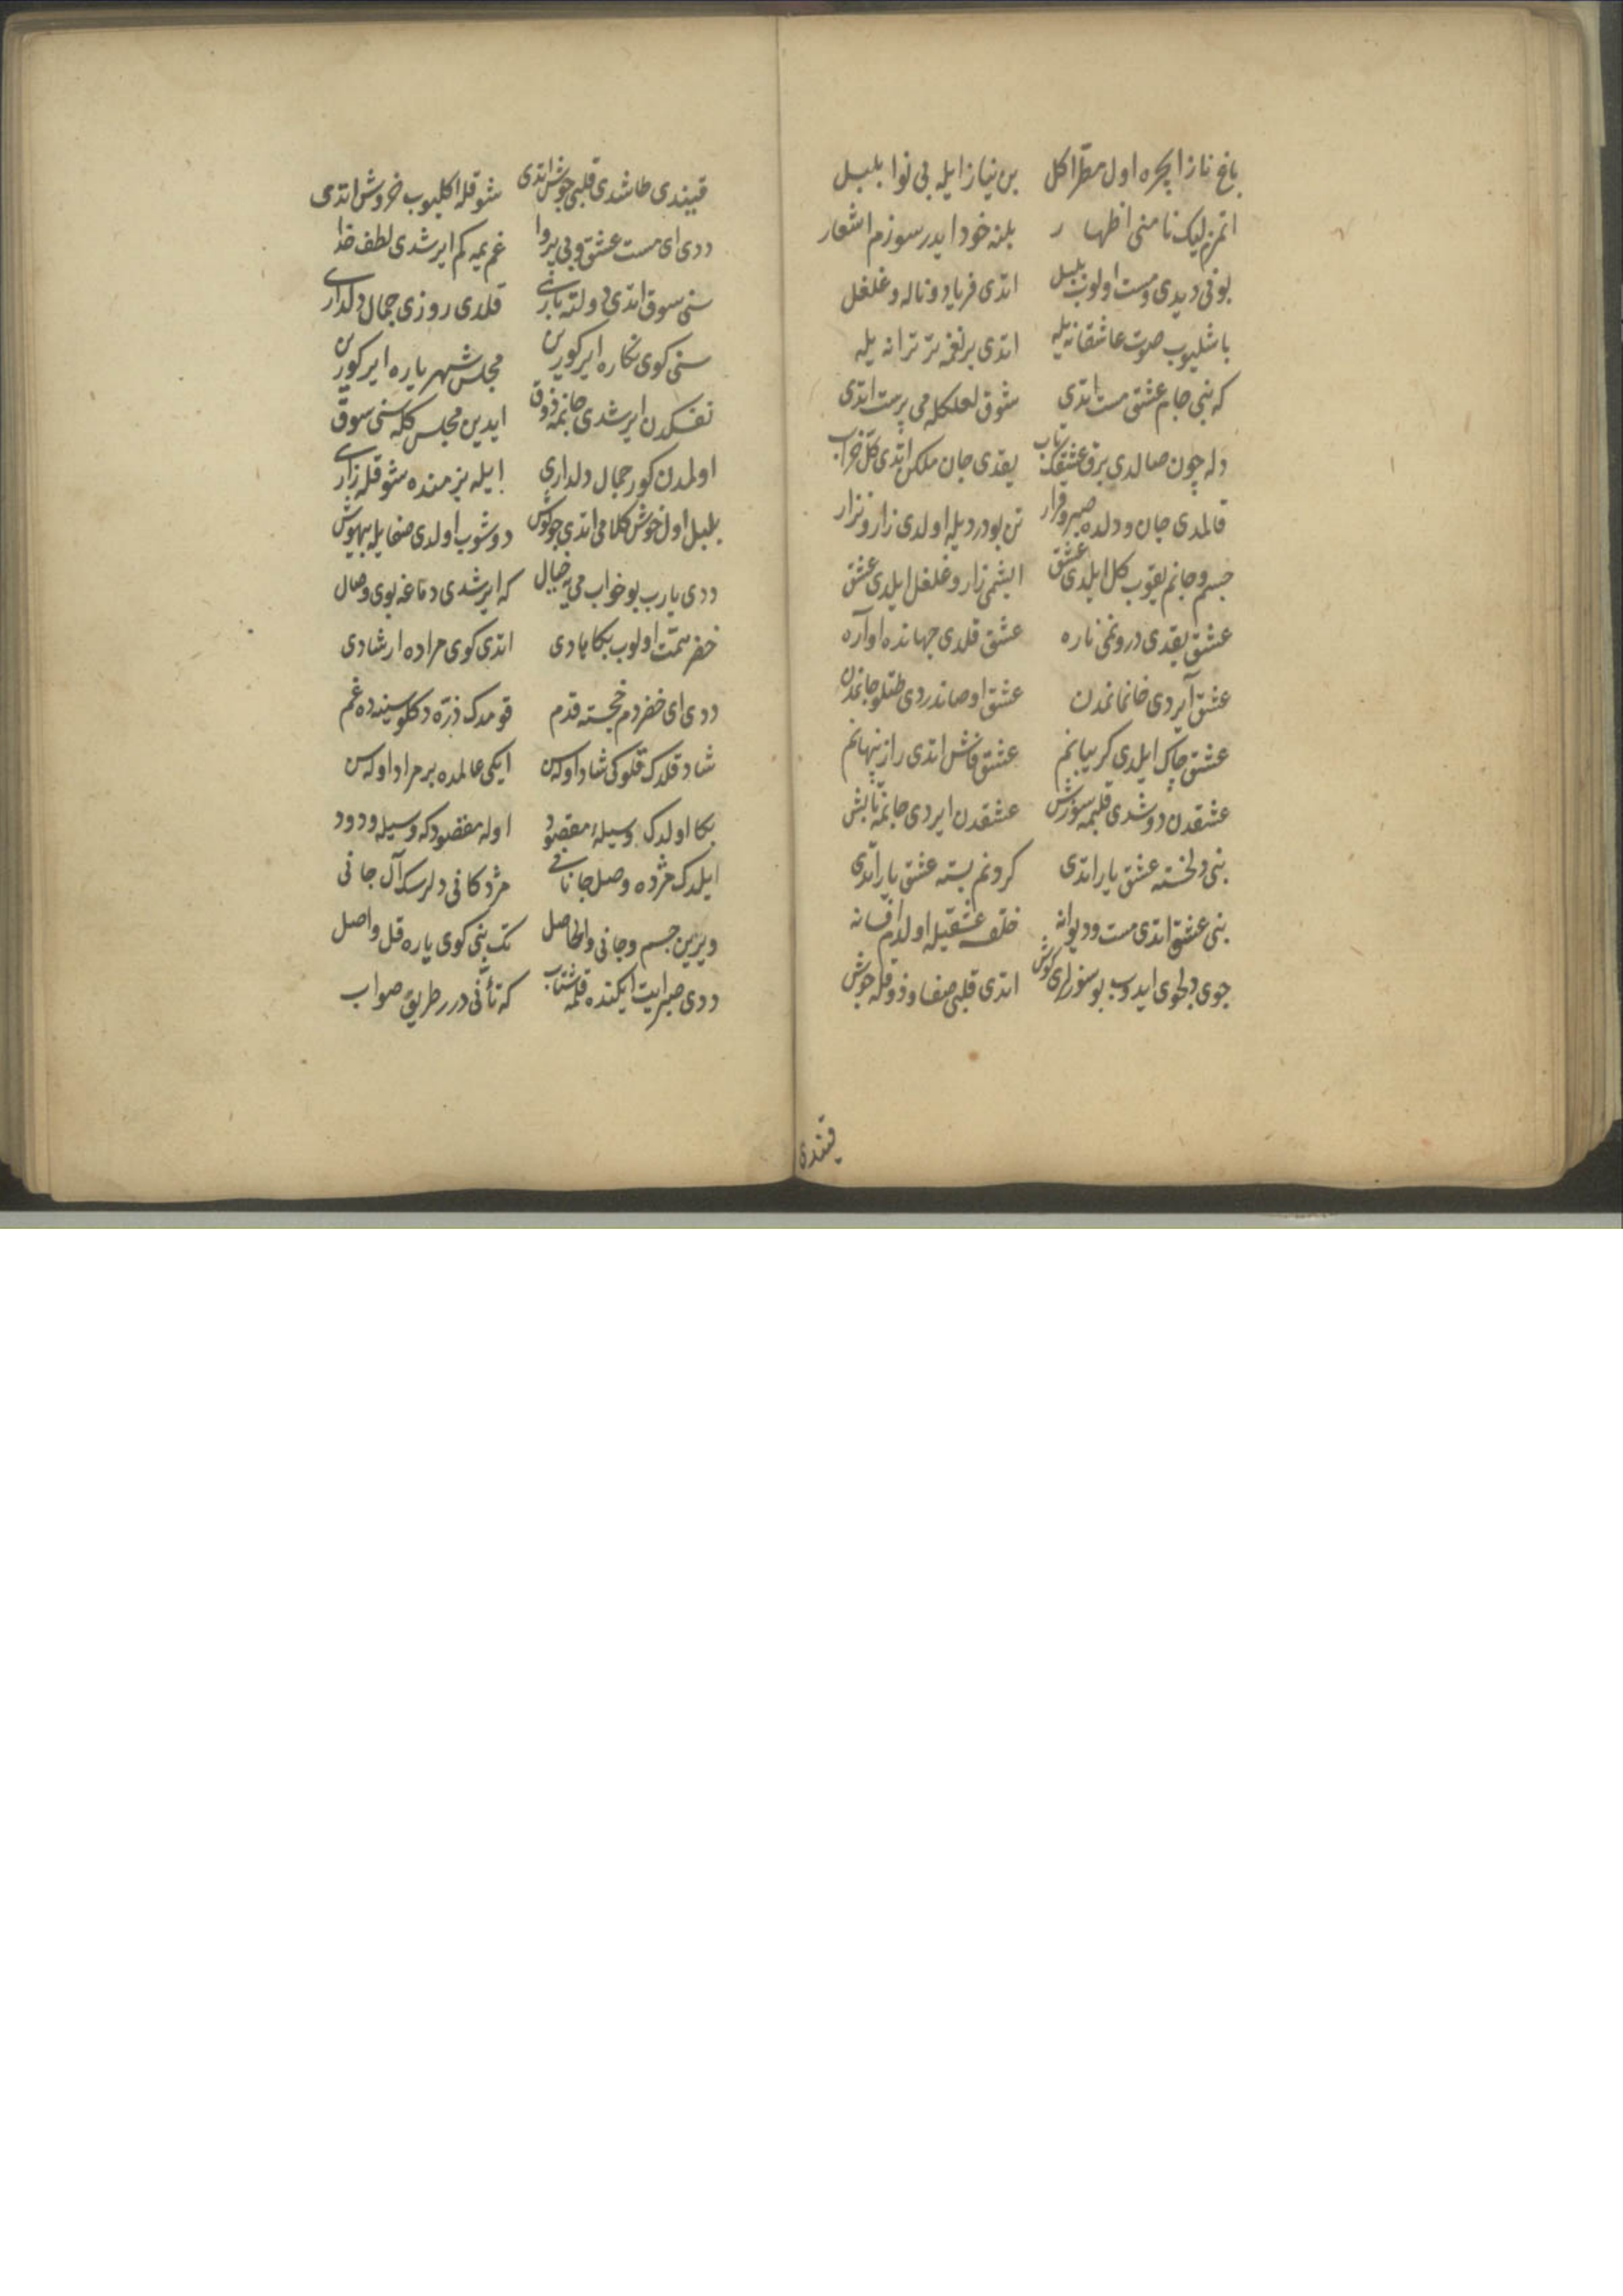 باغ نازا یچره اول مطرا کل بن نیاز ایله بی نوا بلبل
اتمزم لیک نامنی اظهار بلنه خود ایدر سوزم اشعار
بونی دیدی و مست اولوب بلبل اتدی فریاد و ناله و غلغل
باشلیوب صوت عاشقانه یله اتدی بر نغمه تر ترانه یله
که بنی جام عشقی مست اتدی شوق لعلکله می پرست اتدی
دله چون صالدی برق عشقک تاب یقدی جان ملکن اتدی کل خراب
قالمدی جان و دلده صبر و قرار تن بو دردیله اولدی زار و نزار
جسم و جانم یقوب کل ایلدی عشق ایشمی زار و غلغل ایلدی عشق
عشق یقدی درونمی ناره عشق قلدی جهانده اواره
عشق آیردی خانمانمدن عشق اوصاندردی طتلو جانمدن
عشق چاک ایلدی کریبانم عشق فاش اتدی راز پنهانم
عشقدن دوشدی قلبمه سوزش عشقدن ایردی جانمه تابش
بنی دلخسته عشق یار اتدی کردنم بسته عشق یار اتدی
بنی عشق اتدی مست و دیوانه خلقه عشقیله اولدم افسانه
جوی دلجوی ایدوب بو سوزلری کوش اتدی قلبی صفا و ذوقله جوش
قیندی
قیندی طاشدی قلبی جوش اتدی شوقله اکلیوب خروش اتدی
ددی ای مست عشق و بی پروا غم یمه کم ایرشدی لطف خدا
سنی سوق اتدی دولته باری قلدی روزی جمال دلداری
سنی کوی نکاره ایرکورین مجلس شهریاره ایرکورین
نفسکدن ایرشدی جانمه ذوق ایدین مجلس کله سنی سوق
اولمدن کور جمال دلداری ایله بزمنده شوقله زاری
بلبل اول خوش کلامی اتدی چو کوش دوشوب اولدی صفایله بیهوش
ددی یارب بو خواب می یه خیال که ایرشدی دماغه بوی وصال
خضر همت اولوب بکا هادی اتدی کوی مراده ارشادی
ددی ای خضر دم خجسته قدم قومدک ذره دکلو سینه ده غم
شاد قلدک قلوکی شاد اوله سن ایکی عالمده بر مراد اوله سن
بکا اولدک وسیله مقصود اوله مقصودکه وسیله ودود
ایلدک مژده وصل جانانی مژدکانی دلرسک آل جانی
ویرین جسم و جانی والحاصل تک بنی کوی یاره قل واصل
ددی صبر ایت ایکنده قلمه شتاب که تأنی درر طریق صواب